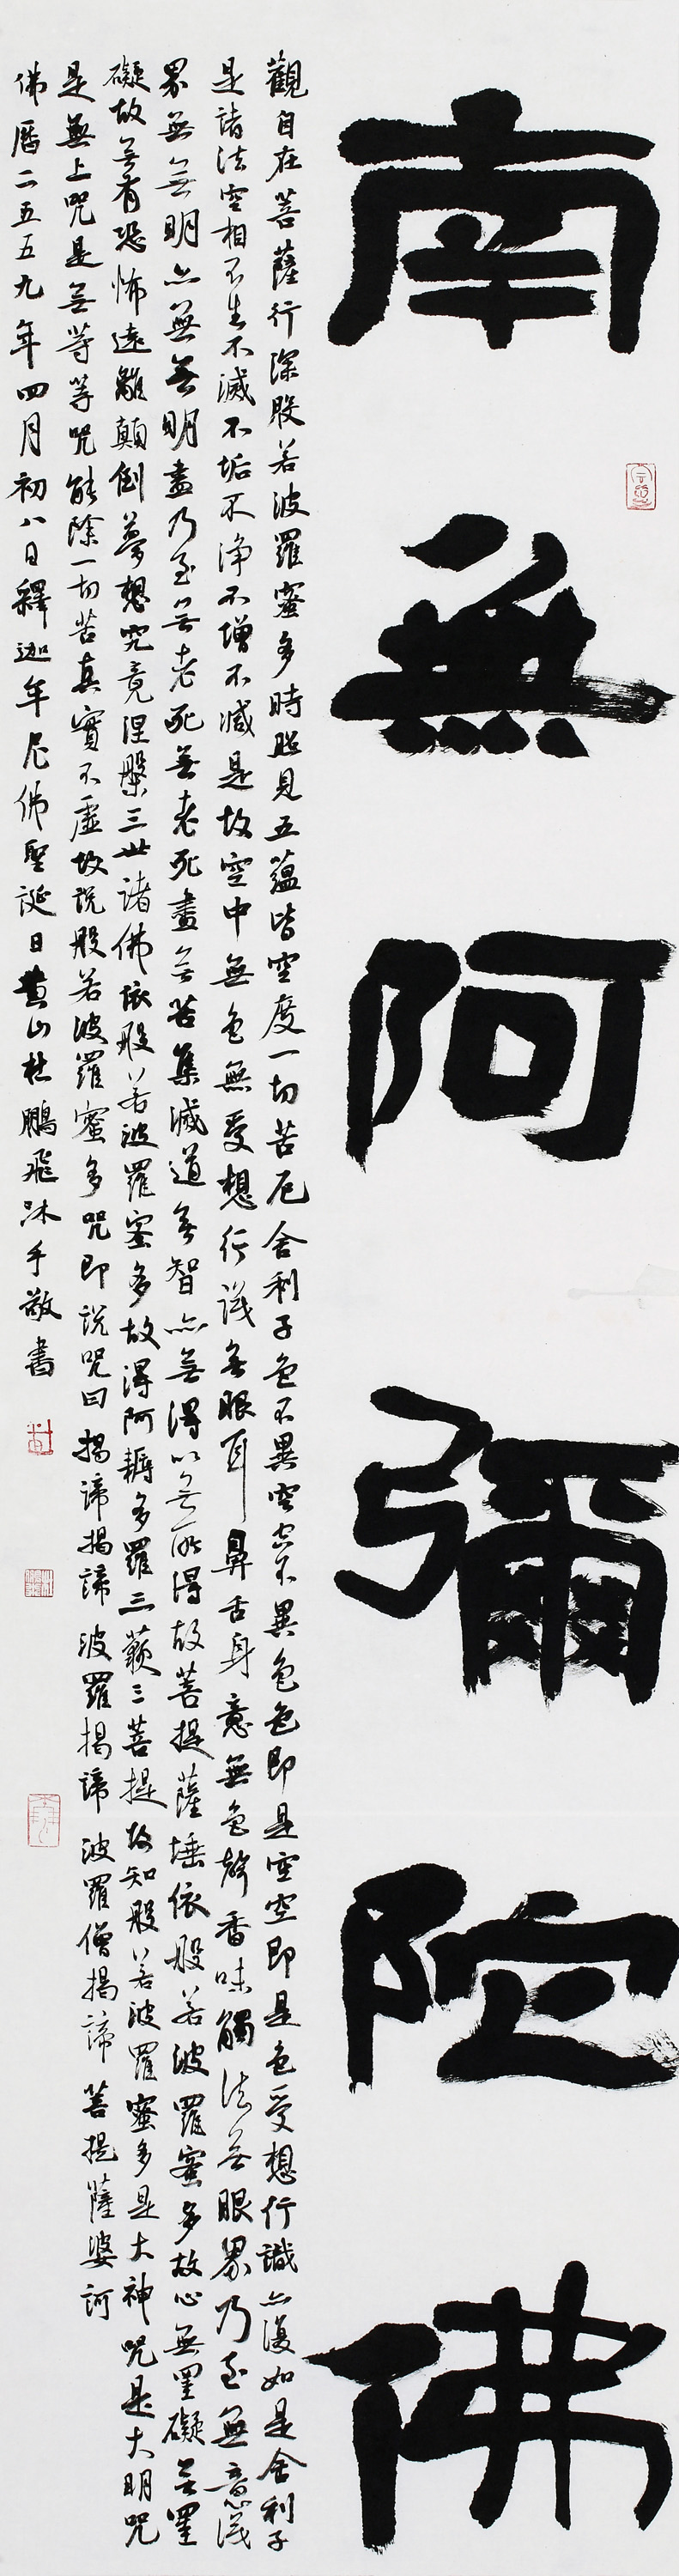 南無阿彌陀佛
觀自在菩薩行深般若波羅蜜多時照見五蘊皆空度一切苦厄舍利子色不異空空不異色色即是空空即是色受想行識亦復如是舍利子
是諸法空相不生不滅不垢不淨不增不減是故空中無色無受想行識無眼耳鼻舌身意無色聲香味觸法無眼界乃至無意識
界無無明亦無無明盡乃至無老死無老死盡無苦集滅道無智亦無得以無所得故菩提薩埵依般若波羅蜜多故心無罣礙無罣
礙故無有恐怖遠離顛倒夢想究竟涅槃三世諸佛依般若波羅蜜多故得阿耨多羅三藐三菩提故知般若波羅蜜多是大神咒是大明咒
是無上咒是無等等咒能除一切苦真實不虛故說般若波羅蜜多咒即說咒曰 揭諦揭諦 波羅揭諦 波羅僧揭諦 菩提薩婆訶
佛曆二五五九年四月初八日釋迦牟尼佛聖誕日黃山杜鵬飛沐手敬書